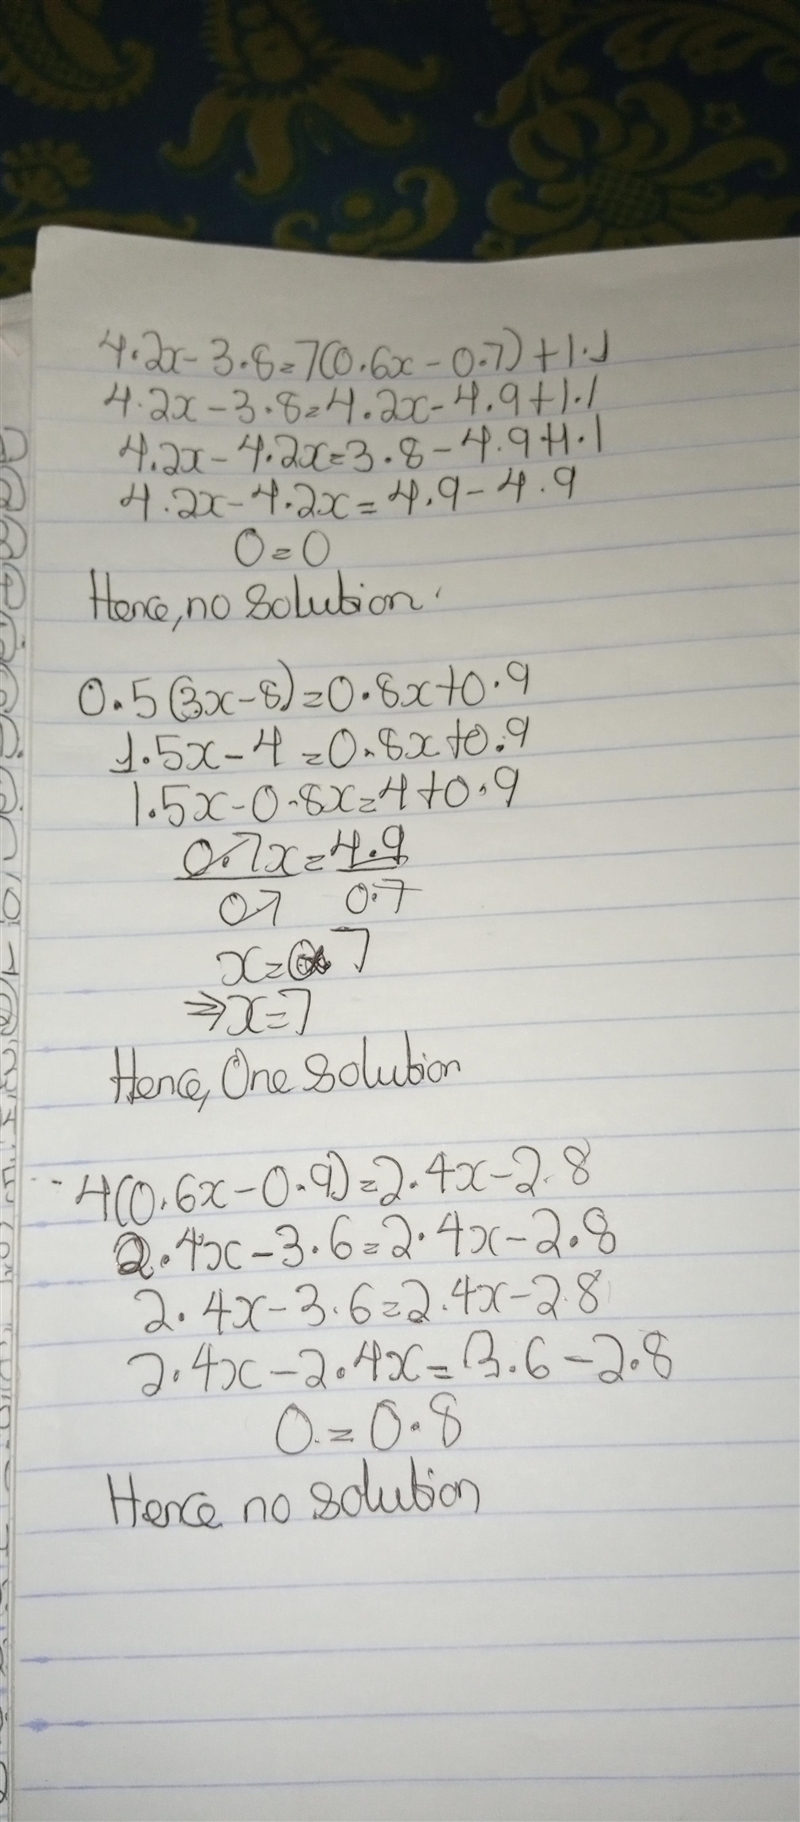 4.2x-3.8=7(0.6x-0.7)+1.1
4.2x-3.8=4.2x-4.9+1.1
4.2x-4.2x=3.8-4.9+1.1
4.2x-4.2x=4.9-4.9
0=0
Hence, no solution.
0.5(3x-8)=0.8x+0.9
1.5x-4=0.8x+0.9
1.5x-0.8x=4+0.9
0.7x=4.9
0.7 0.7
x=7
⇒x=7
Hence, One solution
4(0.6x-0.9)=2.4x-2.8
2.4x-3.6=2.4x-2.8
2.4x-3.6=2.4x-2.8
2.4x-2.4x=3.6-2.8
0.=0.8
Hence no solution